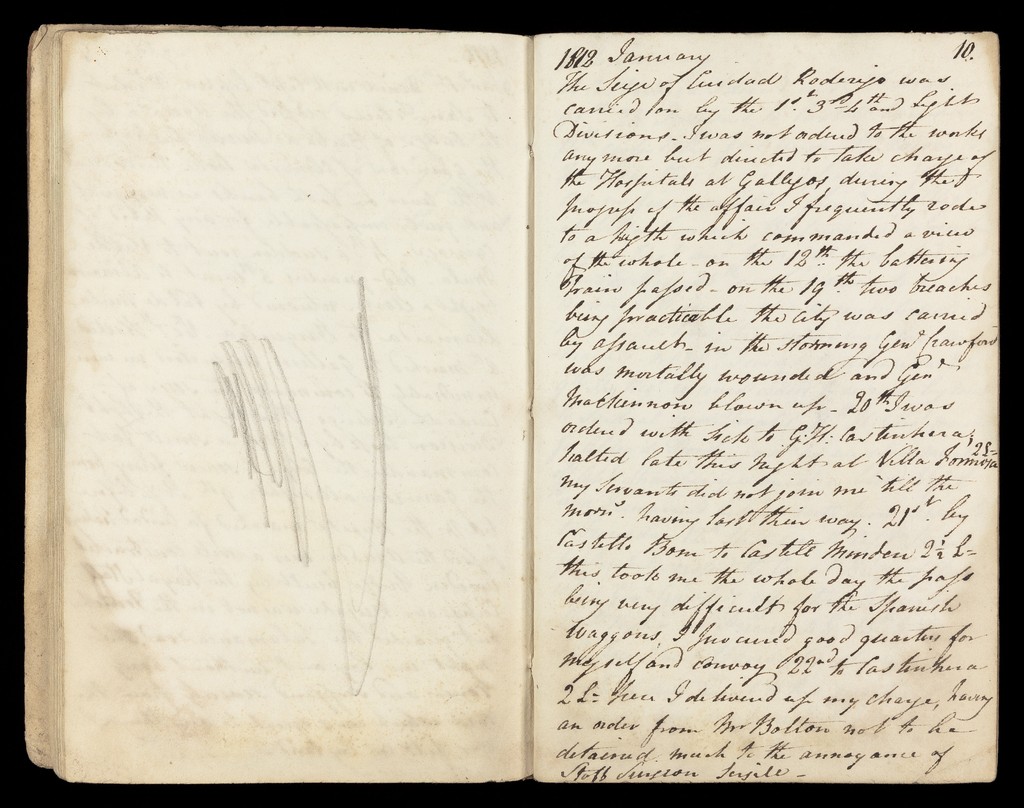 1812 January 10.
The Seige of Ciudad Roderigo was
carried on by the 1st. 3rd 4th and Light
Divisions. I was not ordered to the works
any more but directed to take charge of
the Hospitals at Gallegos, during the
progress of the affair I frequently rode
to a higth which commanded a view
of the whole - on the 12th. the battering
train passed - on the 19th two breaches
being practicable the City was carried
by assault - in the storming Genl Crawford
was mortally wounded and Genl
MacKinnon blown up - 20th I was
ordered with sick to G.H: Castinhera,
halted late this night at Villa Formosa 2L-
my servants did not join me till the
morng. having lost their way. 21st. by
Castello Bom to Castell Minden 2½ L-
this took me the whole day the pass
being very difficult for the Spanish
Waggons, I procured good quarters for
myself and convoy 22nd to Castinhera
2 L- here I delivered up my charge, having
an order from Mr Bolton not to be
detained much to the annoyance of
Staff Surgeon